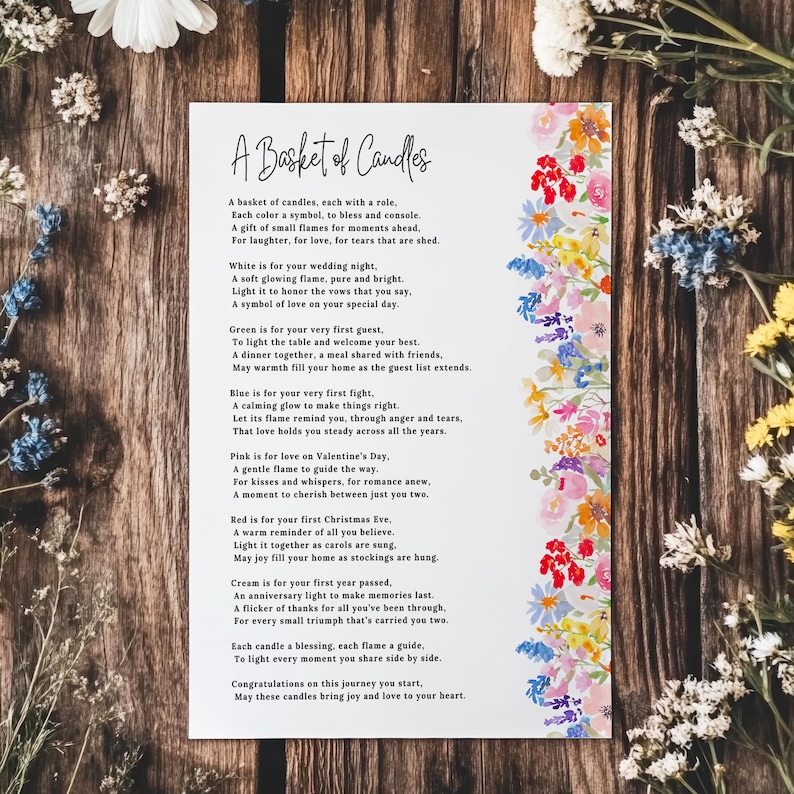 A Basket of Candles
A basket of candles, each with a role,
Each color a symbol, to bless and console.
A gift of small flames for moments ahead,
For laughter, for love, for tears that are shed.
White is for your wedding night,
A soft glowing flame, pure and bright.
Light it to honor the vows that you say,
A symbol of love on your special day.
Green is for your very first guest,
To light the table and welcome your best.
A dinner together, a meal shared with friends,
May warmth fill your home as the guest list extends.
Blue is for your very first fight,
A calming glow to make things right.
Let its flame remind you, through anger and tears,
That love holds you steady across all the years.
Pink is for love on Valentine's Day,
A gentle flame to guide the way.
For kisses and whispers, for romance anew,
A moment to cherish between just you two.
Red is for your first Christmas Eve,
A warm reminder of all you believe.
Light it together as carols are sung,
May joy fill your home as stockings are hung.
Cream is for your first year passed,
An anniversary light to make memories last.
A flicker of thanks for all you've been through,
For every small triumph that's carried you two.
Each candle a blessing, each flame a guide,
To light every moment you share side by side.
Congratulations on this journey you start,
May these candles bring joy and love to your heart.